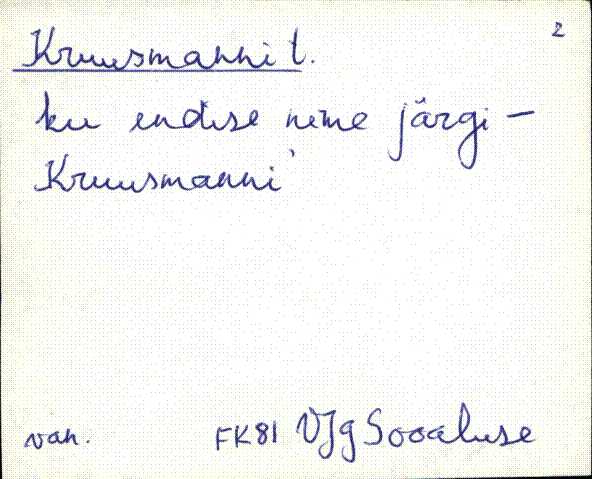 2
Kruusmanni t.
ku endise neme järgi –
Kruusmanni'
van. FK81 VJg Sooaluse